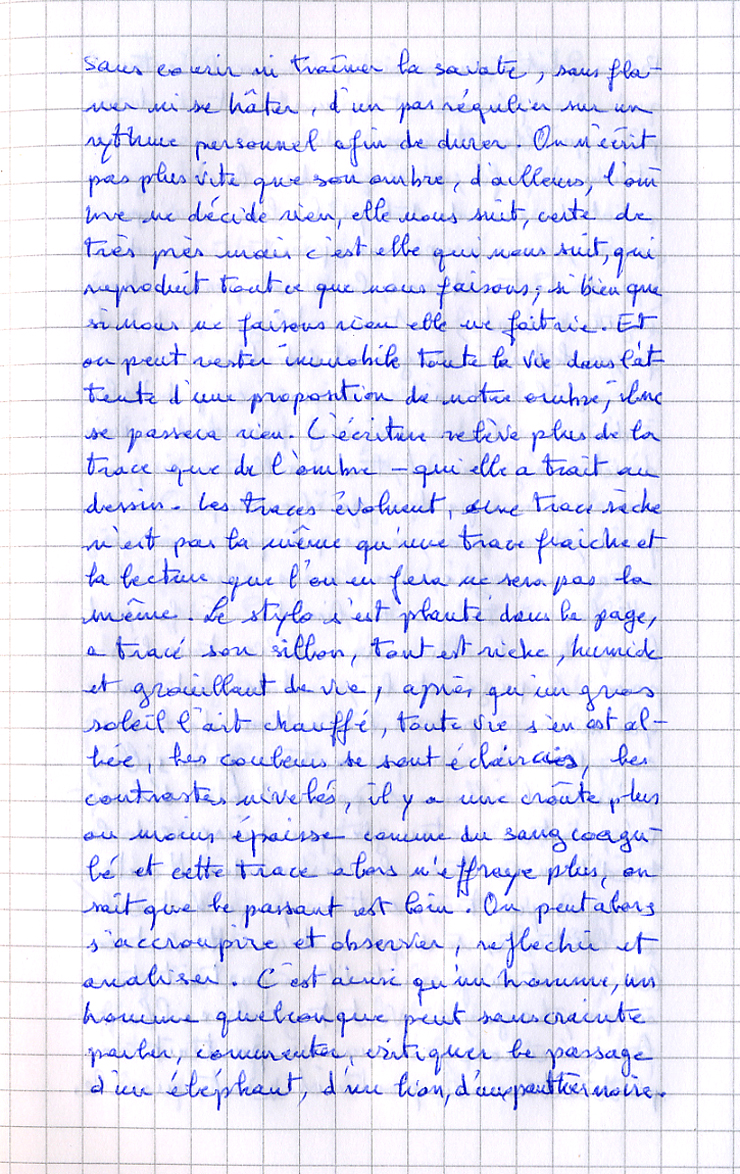 Sans courir ni traîner la savate, sans fla-
ner ni se hâter, d'un pas régulier sur un
rythme personnel afin de durer. On n'écrit
pas plus vite que son ombre, d'ailleurs, l'om
bre ne décide rien, elle nous suit, certe de
très près mais c'est elle qui nous suit, qui
reproduit tout ce que nous faisons; si bien que
si nous ne faisons rien elle ne fait rie. Et
on peut rester immobile toute la vie dans l'at-
tente d'une proposition de notre ombre, il ne
se passera rien. L'écriture relève plus de la
trace que de l'ombre – qui elle a trait au
dessin. Les traces évoluent, une trace sèche
n'est pas la même qu'une trace fraîche et
la lecture que l'on en fera ne sera pas la
même. Le stylo s'est planté dans la page,
a tracé son sillon, tout est riche, humide
et grouillant de vie, après qu'un gros
soleil l'ait chauffé, toute vie s'en est al-
lée, les couleurs se sont éclaircies, les
contrastes nivelés, il y a une croûte plus
ou moins épaisse comme du sang coagu-
lé et cette trace alors n'effraye plus, on
sait que le passant est loin. On peut alors
s'accroupire et observer, reflechir et
analiser. C'est ainsi qu'un homme, un
homme quelconque peut sans crainte
parler, commenter, critiquer le passage
d'un éléphant, d'un lion, d'une panthère noire.